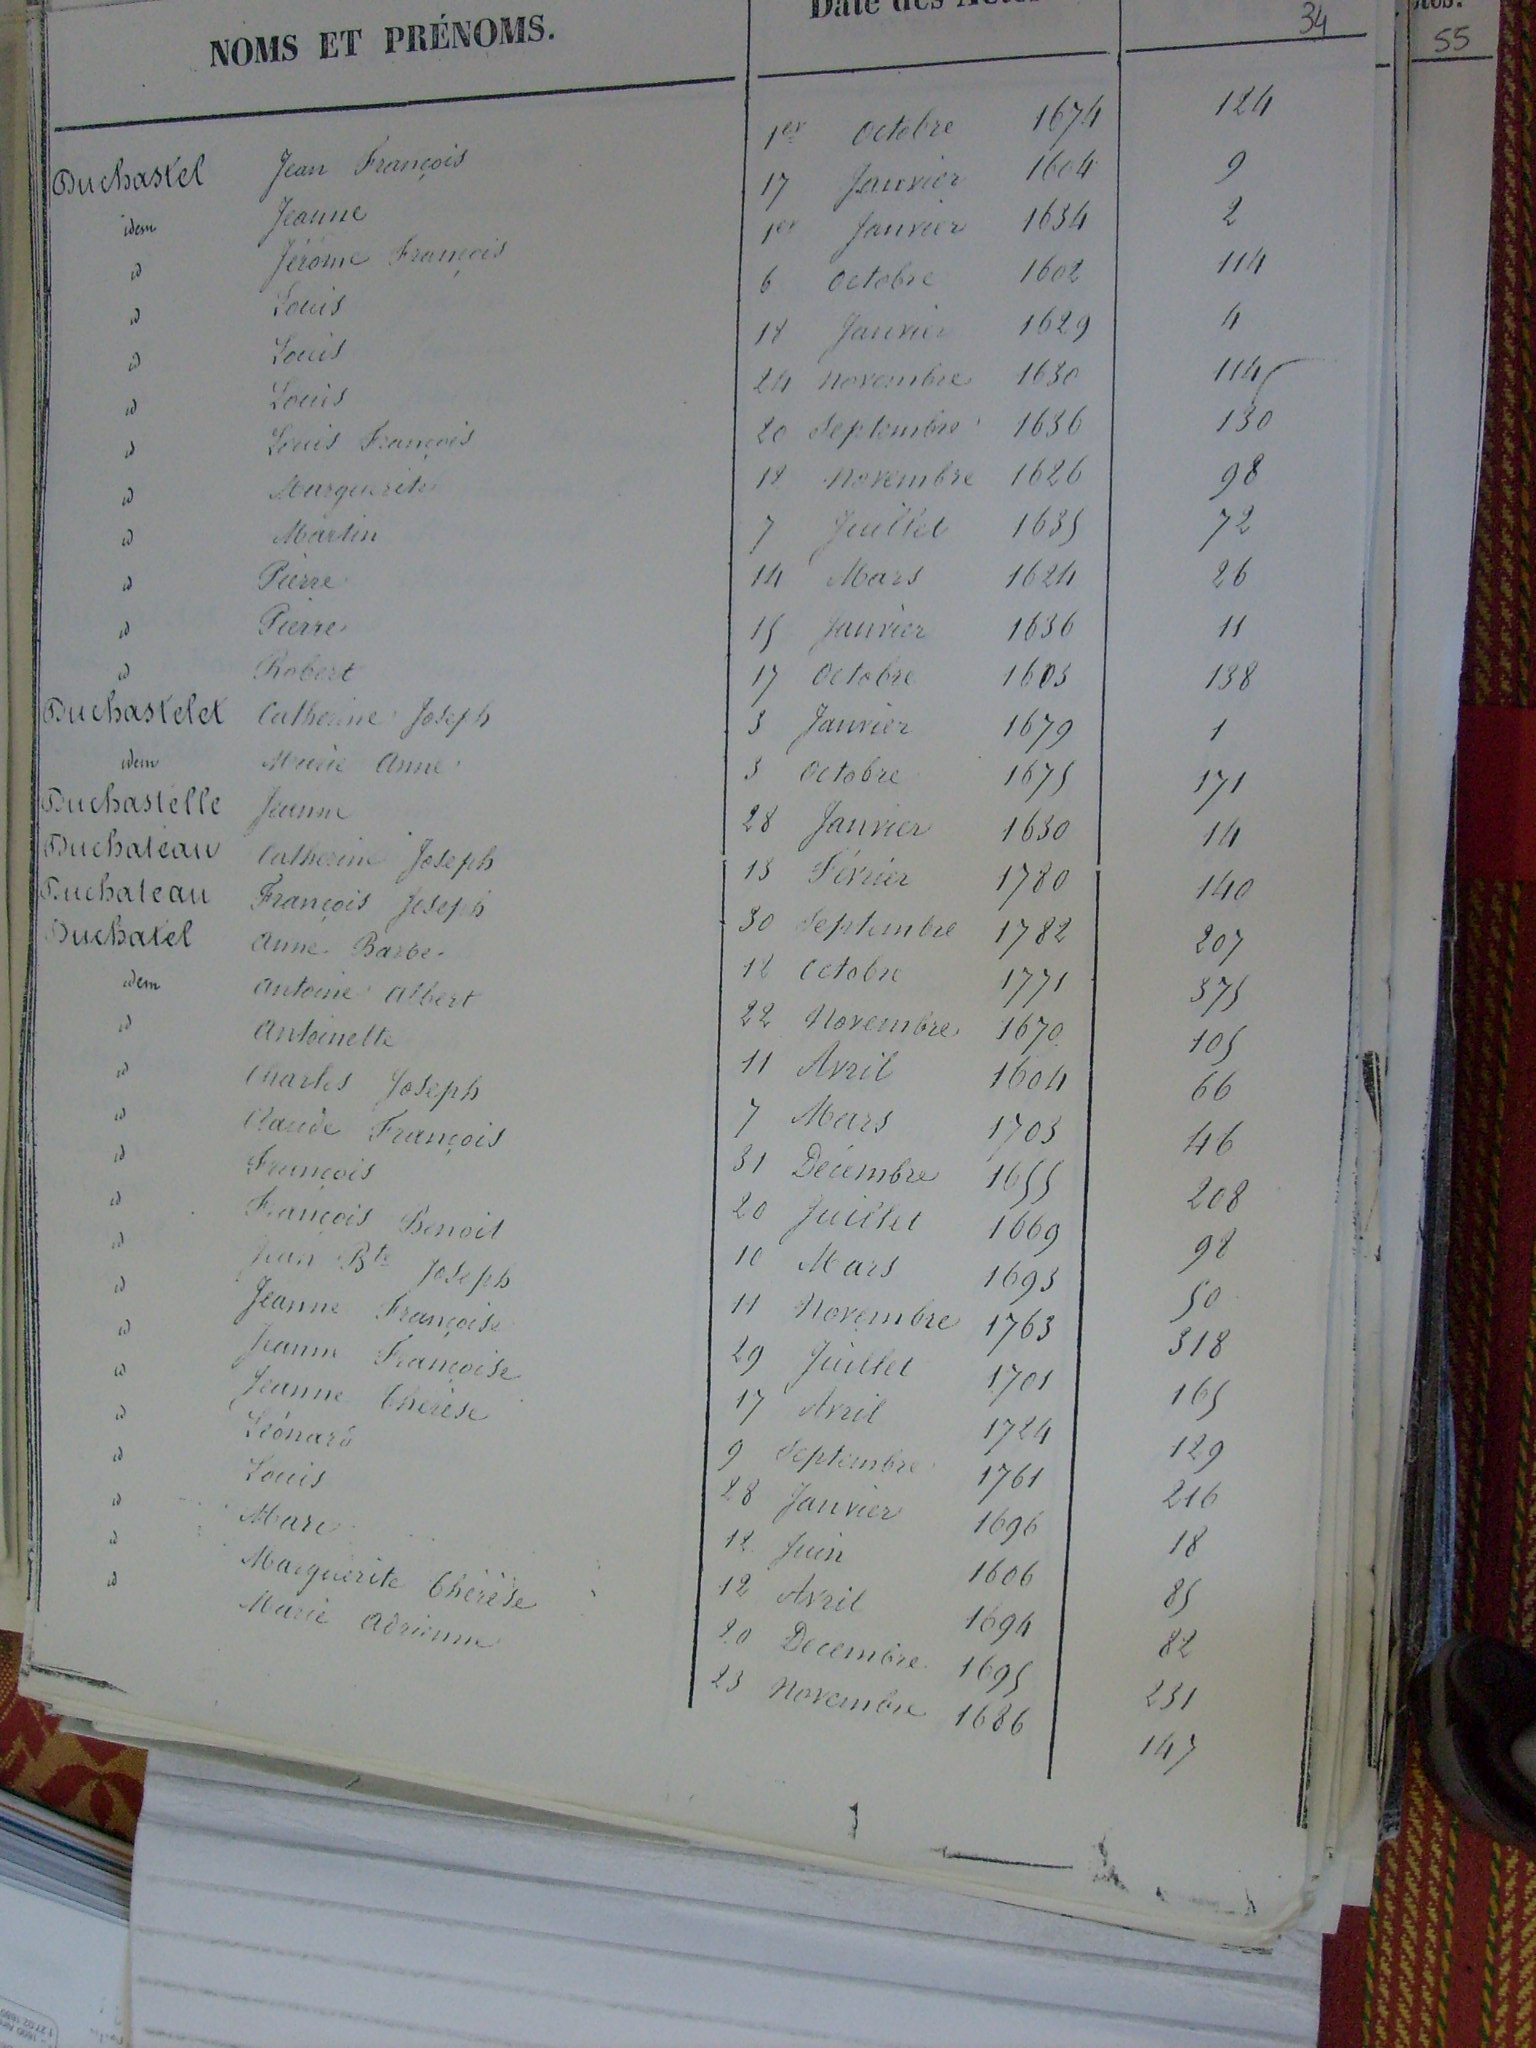 NOMS ET PRÉNOMS. Date des 34 55
Duchastel Jean François 1er Octobre 1674 124
idem Jeanne 17 Janvier 1604 9
id Jérôme François 1er Janvier 1634 2
id Louis 6 Octobre 1602 114
id Louis 18 Janvier 1629 4
id Louis 24 Novembre 1630 114
id Louis François 20 Septembre 1636 130
id Marguerite 12 Novembre 1626 98
id Martin 7 Juillet 1635 72
id Pierre 14 Mars 1624 26
id Pierre 15 Janvier 1636 11
id Robert 17 Octobre 1603 138
Duchastelet Catherine Joseph 3 Janvier 1679 1
idem Marie Anne 3 Octobre 1675 171
Duchastelle Jeanne 28 Janvier 1630 14
Duchateau Catherine Joseph 13 Février 1780 140
Duchateau François Joseph 30 Septembre 1782 207
Duchatel Anne Barbe 12 Octobre 1771 375
idem Antoine Albert 22 Novembre 1670 105
id Antoinette 11 Avril 1604 66
id Charles Joseph 7 Mars 1703 46
id Claude François 31 Décembre 1655 208
id François 20 Juillet 1669 98
id François Benoit 10 Mars 1693 50
id Jean Bte Joseph 11 Novembre 1763 318
id Jeanne Françoise 29 Juillet 1701 165
id Jeanne Françoise 17 Avril 1724 129
id Jeanne Thérèse 9 Septembre 1761 216
id Léonard 28 Janvier 1696 18
id Louis 12 Juin 1606 85
id Marc 12 Avril 1694 82
id Marguerite Thérèse 20 Decembre 1695 231
id Marie Adrienne 23 Novembre 1686 147